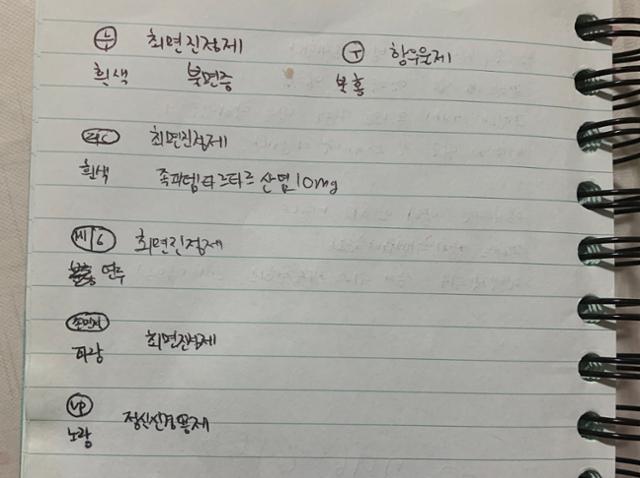 최면진정제 항우울제
흰색 불면증 분홍
최면진정제
흰색 졸피뎀타르타르산염 10mg
최면진정제
연주
최면진정제
파랑
VP
정신신경용제
노랑